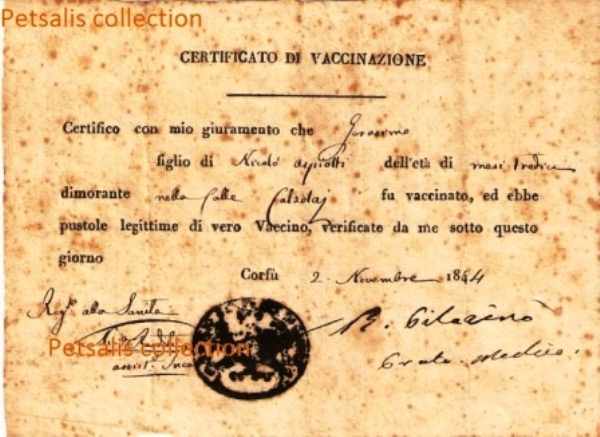 Petsalis collection
CERTIFICATO DI VACCINAZIONE
Certifico con mio giuramento che Gerasimo
figlio di Nicolò dell'età di mesi tredici
dimorante nella Calle Calzolaj fu vaccinato, ed ebbe
pustole legittime di vero Vaccino, verificate da me sotto questo
giorno
Corfù 2. Novembre 1844
alla Sanità
Petsalis collection
Medico.